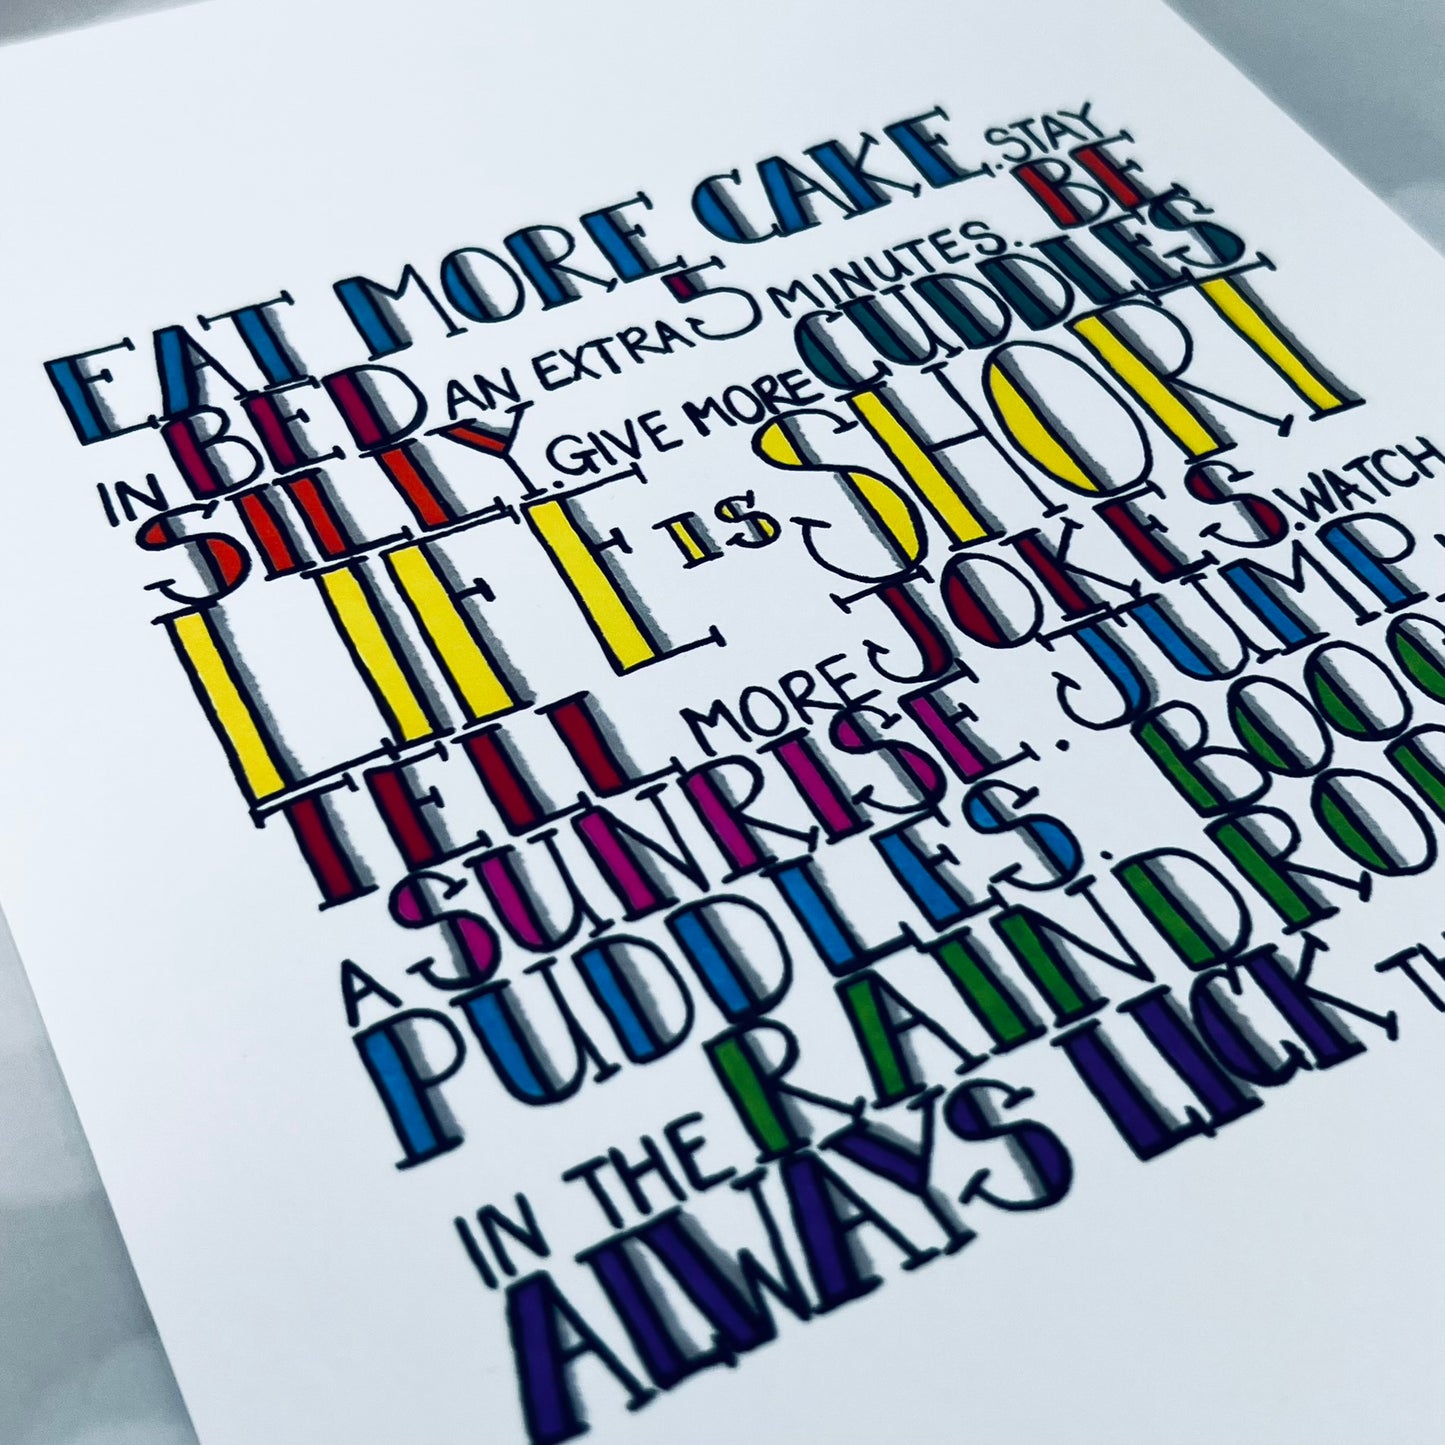 EAT MORE CAKE. STAY
IN BED AN EXTRA 5 MINUTES. BE
SILLY. GIVE MORE CUDDLES
LIFE IS SHORT
TELL MORE JOKES. WATCH
A SUNRISE. JUMP
PUDDLES.
IN THE RAIN DRO
ALWAYS LICK